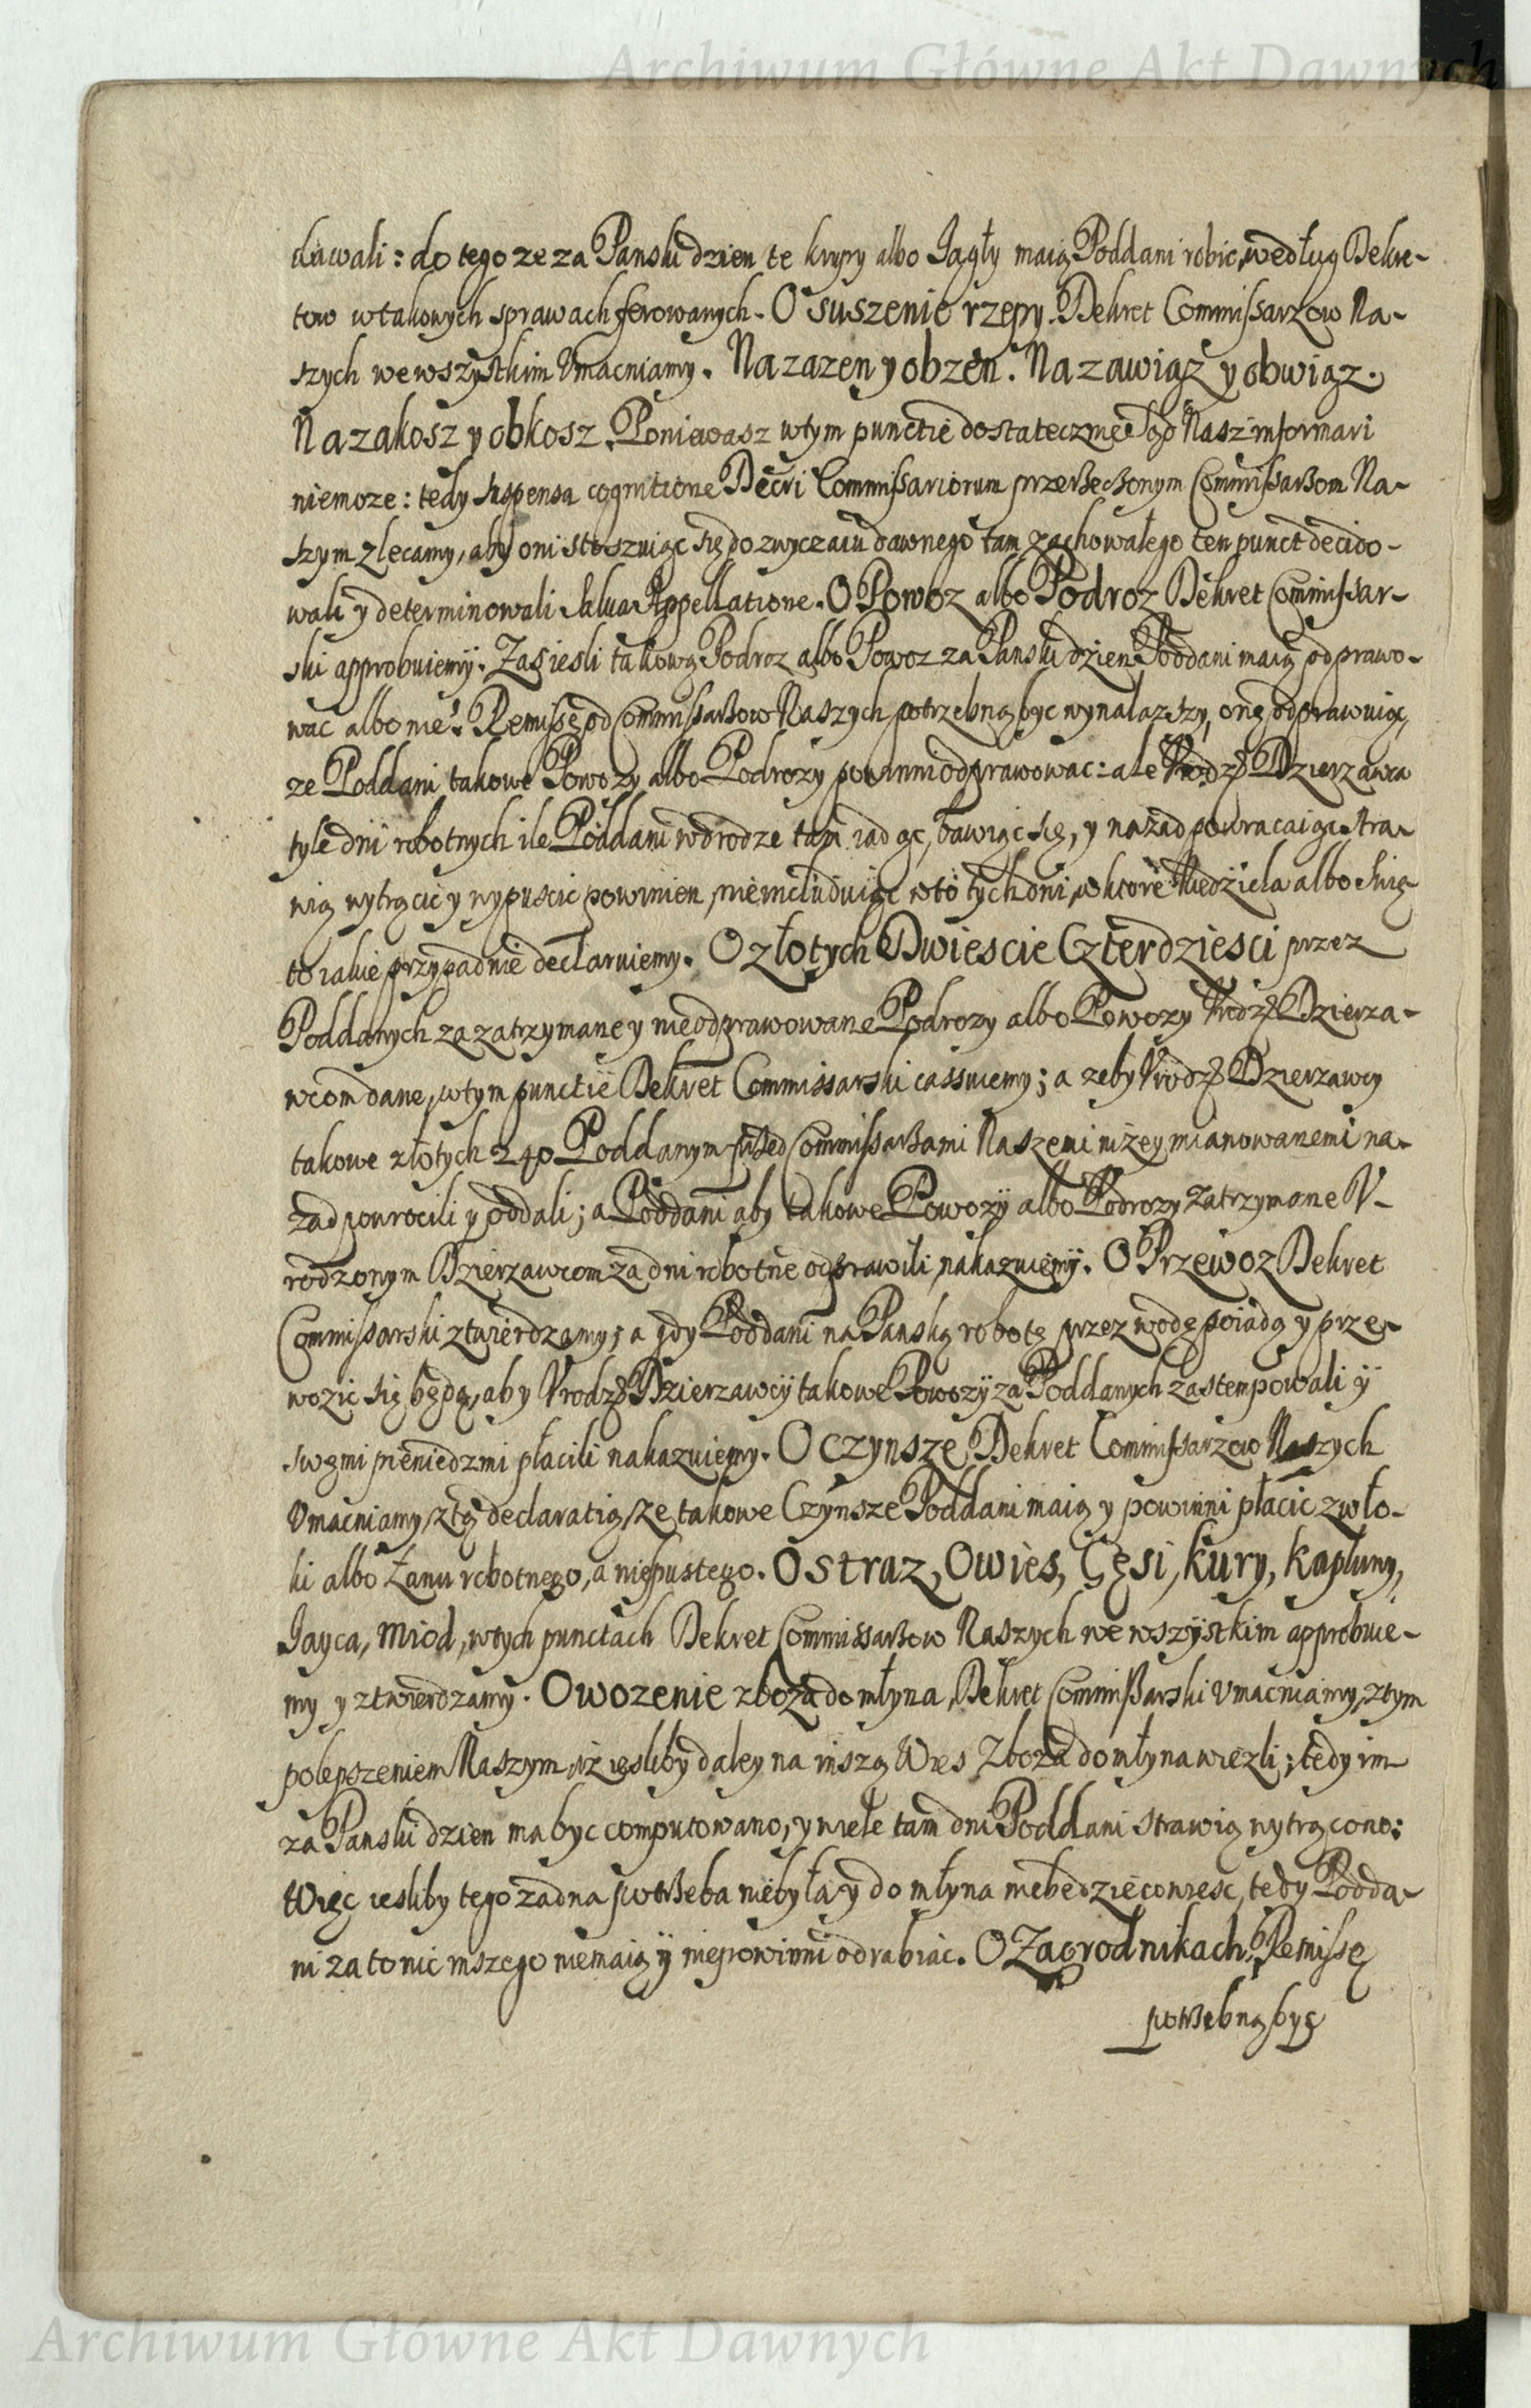 Archiwum Główne Akt Dawnych
dawali: do tego ze za Panski dzien te krupy albo Jagły maią Poddani robic, według Dekre-
tow w takowych sprawach ferowanych. O suszenie rzepy. Dekret Commissarzow Na-
szych we wszystkim Vmacniamy. Na zazen y obzen. Na zawiąz y obwiąz.
Na zakosz y obkosz. Poniewasz w tym punctie dostatecznie Sąd Nasz informari
niemoze: tedy suspensa cognitione Decreti Commissariorum przerzeczonym Commissarzom Na-
szym zlecamy, aby oni stoszuiąc się do zwyczaiu dawnego tam zachowałego ten punct decido-
wali y determinowali salua Appellatione. O Powoz albo Podroz Dekret Commissar-
ski approbuiemy. Zas iesli takową Podroz albo Powoz za Panski dzien Poddani maią odprawo-
wac albo nie? Remissę od Commissarzow Naszych potrzebną byc wynalazszy, onę odprawuiąc,
ze Poddani takowe Powozy albo Podrozy powinni odprawowac: ale Vrodz: Dzierzawca
tyle dni robotnych ile Poddani w drodze tam iadąc, bawiąc się, y nazad powracaiąc stra-
wią wytrącic y wypuscic powinien, nieincluduiąc w to tych dni, w ktore Niedziela albo Swię-
to iakie przypadnie declaruiemy. O złotych Dwiescie Czterdziesci przez
Poddanych za zatrzymane y nieodprawowane Podrozy albo Powozy Vrodz: Dzierza-
wcom dane, w tym punctie Dekret Commissarski cassuiemy; a zeby Vrodz: Dzierzawcy
takowe złotych 240 Poddanym przed Commissarzami Naszemi nizey mianowanemi na-
zad powrocili y oddali; a Poddani aby takowe Powozy albo Podrozy zatrzymane V-
rodzonym Dzierzawcom za dni robotne odprawili, nakazuiemy. O Przewoz Dekret
Commissarski ztwierdzamy; a gdy Poddani na Panską robotę przez wodę poiadą y prze-
wozic się będą, aby Vrodz: Dzierzawcy takowe Powozy za Poddanych zastempowali y
swemi pieniedzmi płacili nakazuiemy. O czynsze, Dekret Commissarzow Naszych
Vmacniamy, ztą declaratią, ze takowe Czynsze Poddani maią y powinni płacic z wło-
ki albo Łanu robotnego, a niepustego. O straz, Owies, Gęsi, kury, kapłuny,
Jayca, miod, w tych punctach Dekret Commissarzow Naszych we wszystkim approbuie-
my y ztwierdzamy. O wozenie zboza do młyna, Dekret Commissarski vmacniamy, z tym
polepszeniem Naszym, iż iesliby daley na inszą Wies Zboza do młyna wiezli; tedy im
za Panski dzien ma byc computowano, y wiele tam dni Poddani strawią wytrącono:
Więc iesliby tego zadna potrzeba niebyła y do młyna niebędzie co wiesc, tedy Podda-
ni za to nic inszego niemaią y niepowinni odrabiac. O Zagrodnikach, Remissę
potrzebną byc
Archiwum Główne Akt Dawnych